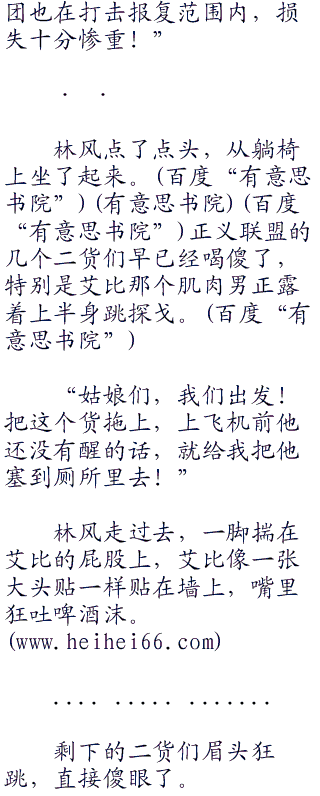 团也在打击报复范围内，损
失十分惨重！”
． ．
林风点了点头，从躺椅
上坐了起来。(百度“有意思
书院”)(有意思书院)(百度
“有意思书院”)正义联盟的
几个二货们早已经喝傻了，
特别是艾比那个肌肉男正露
着上半身跳探戈。(百度“有
意思书院”)
“姑娘们，我们出发！
把这个货拖上，上飞机前他
还没有醒的话，就给我把他
塞到厕所里去！”
林风走过去，一脚揣在
艾比的屁股上，艾比像一张
大头贴一样贴在墙上，嘴里
狂吐啤酒沫。
(www.heihei66.com)
.... ..... .......
剩下的二货们眉头狂
跳，直接傻眼了。